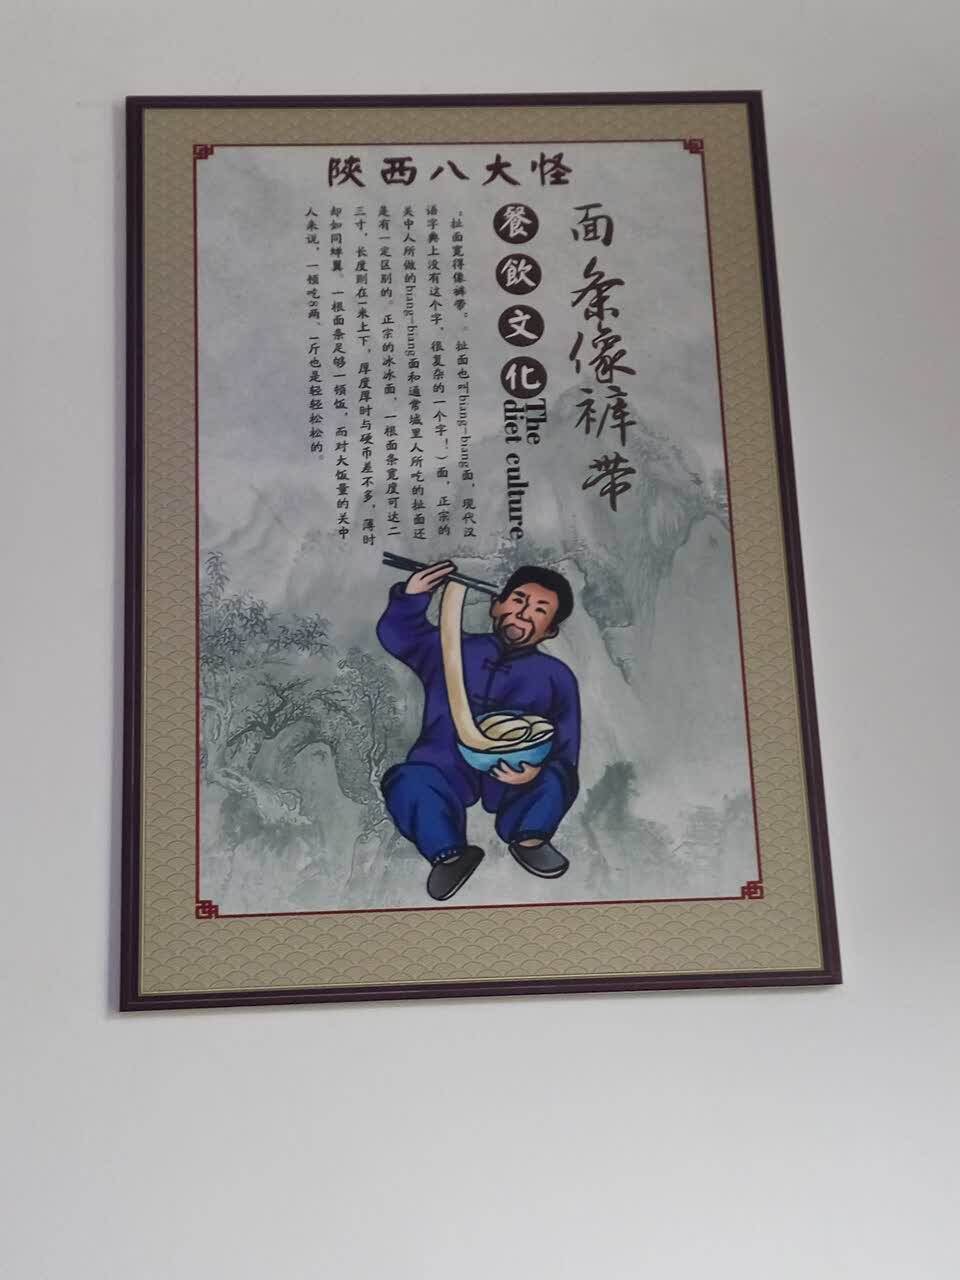 陝西八大怪
面条像裤带
餐飲文化
The
diet culture
“扯面宽得像裤带”。扯面也叫biang-biang面，现代汉
语字典上没有这个字，很复杂的一个字！）面，正宗的
关中人所做的biang-biang面和通常城里人所吃的扯面还
是有一定区别的。正宗的冰冰面，一根面条宽度可达二
三寸，长度则在1米上下，厚度厚时与硬币差不多，薄时
却如同蝉翼。一根面条足够一顿饭，而对大饭量的关中
人来说，一顿吃8两、一斤也是轻轻松松的。